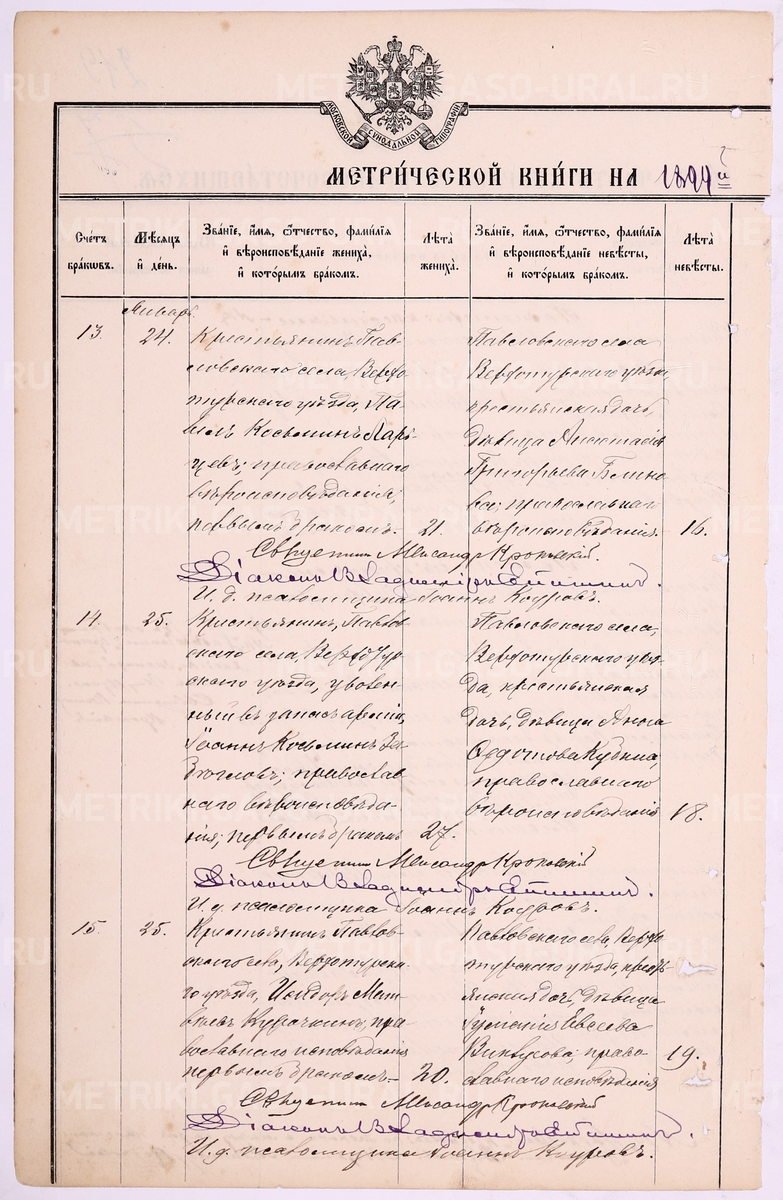 МОСКОВСКОЙ СѴНОДАЛЬНОЙ ТИПОГРАФІИ
МЕТРИ́ЧЕСКОЙ КНИ́ГИ НА 1899 й
Сче́тъ бра́кѡвъ.
Мѣ́сяцъ и҆ де́нь.
Зва́нїе, и҆́мя, ѻ҆́тчество, фами́лїя и҆ вѣроисповѣ́данїе жениха̀, и҆ кото́рымъ бра́комъ.
Лѣ́та жениха̀.
Зва́нїе, и҆́мя, ѻ҆́тчество, фами́лїя и҆ вѣроисповѣ́данїе невѣ́сты, и҆ кото́рымъ бра́комъ.
Лѣ́та невѣ́сты.
Январь.
13. 24.
Крестьянинъ Пав-
ловскаго села, Верхо-
турскаго уѣзда, Па-
велъ Косьминъ
православнаго
вѣроисповѣданія,
первымъ бракомъ. 21.
Павловскаго села
Верхотурскаго уѣзда,
крестьянская дочь,
дѣвица Анастасія
Григорьева
православнаго
вѣроисповѣданія. 16.
Священникъ Александръ
Діаконъ Владиміръ
И. д. псаломщика Іоаннъ
14. 25.
Крестьянинъ, Павлов-
скаго села, Верхотур-
скаго уѣзда, уволен-
ный въ запасъ арміи,
Іоаннъ Косьминъ
православ-
наго вѣроисповѣда-
нія; первымъ бракомъ 27.
Павловскаго села,
Верхотурскаго уѣз-
да, крестьянская
дочь, дѣвица Анна
Ѳедотова
православнаго
вѣроисповѣданія 18.
Священникъ Александръ
Діаконъ Владиміръ
И. д. псаломщика Іоаннъ
15. 25.
Крестьянинъ Павлов-
скаго села, Верхотурска-
го уѣзда, Исидоръ Мат-
вѣевъ Курочкинъ, пра-
вославнаго исповѣданія
первымъ бракомъ. 20.
Павловскаго села, Верхо-
турскаго уѣзда, кресть-
янская дочь, дѣвица
Евсеева
право-
славнаго исповѣданія 19.
Священникъ Александръ
Діаконъ Владиміръ
И. д. псаломщика Іоаннъ